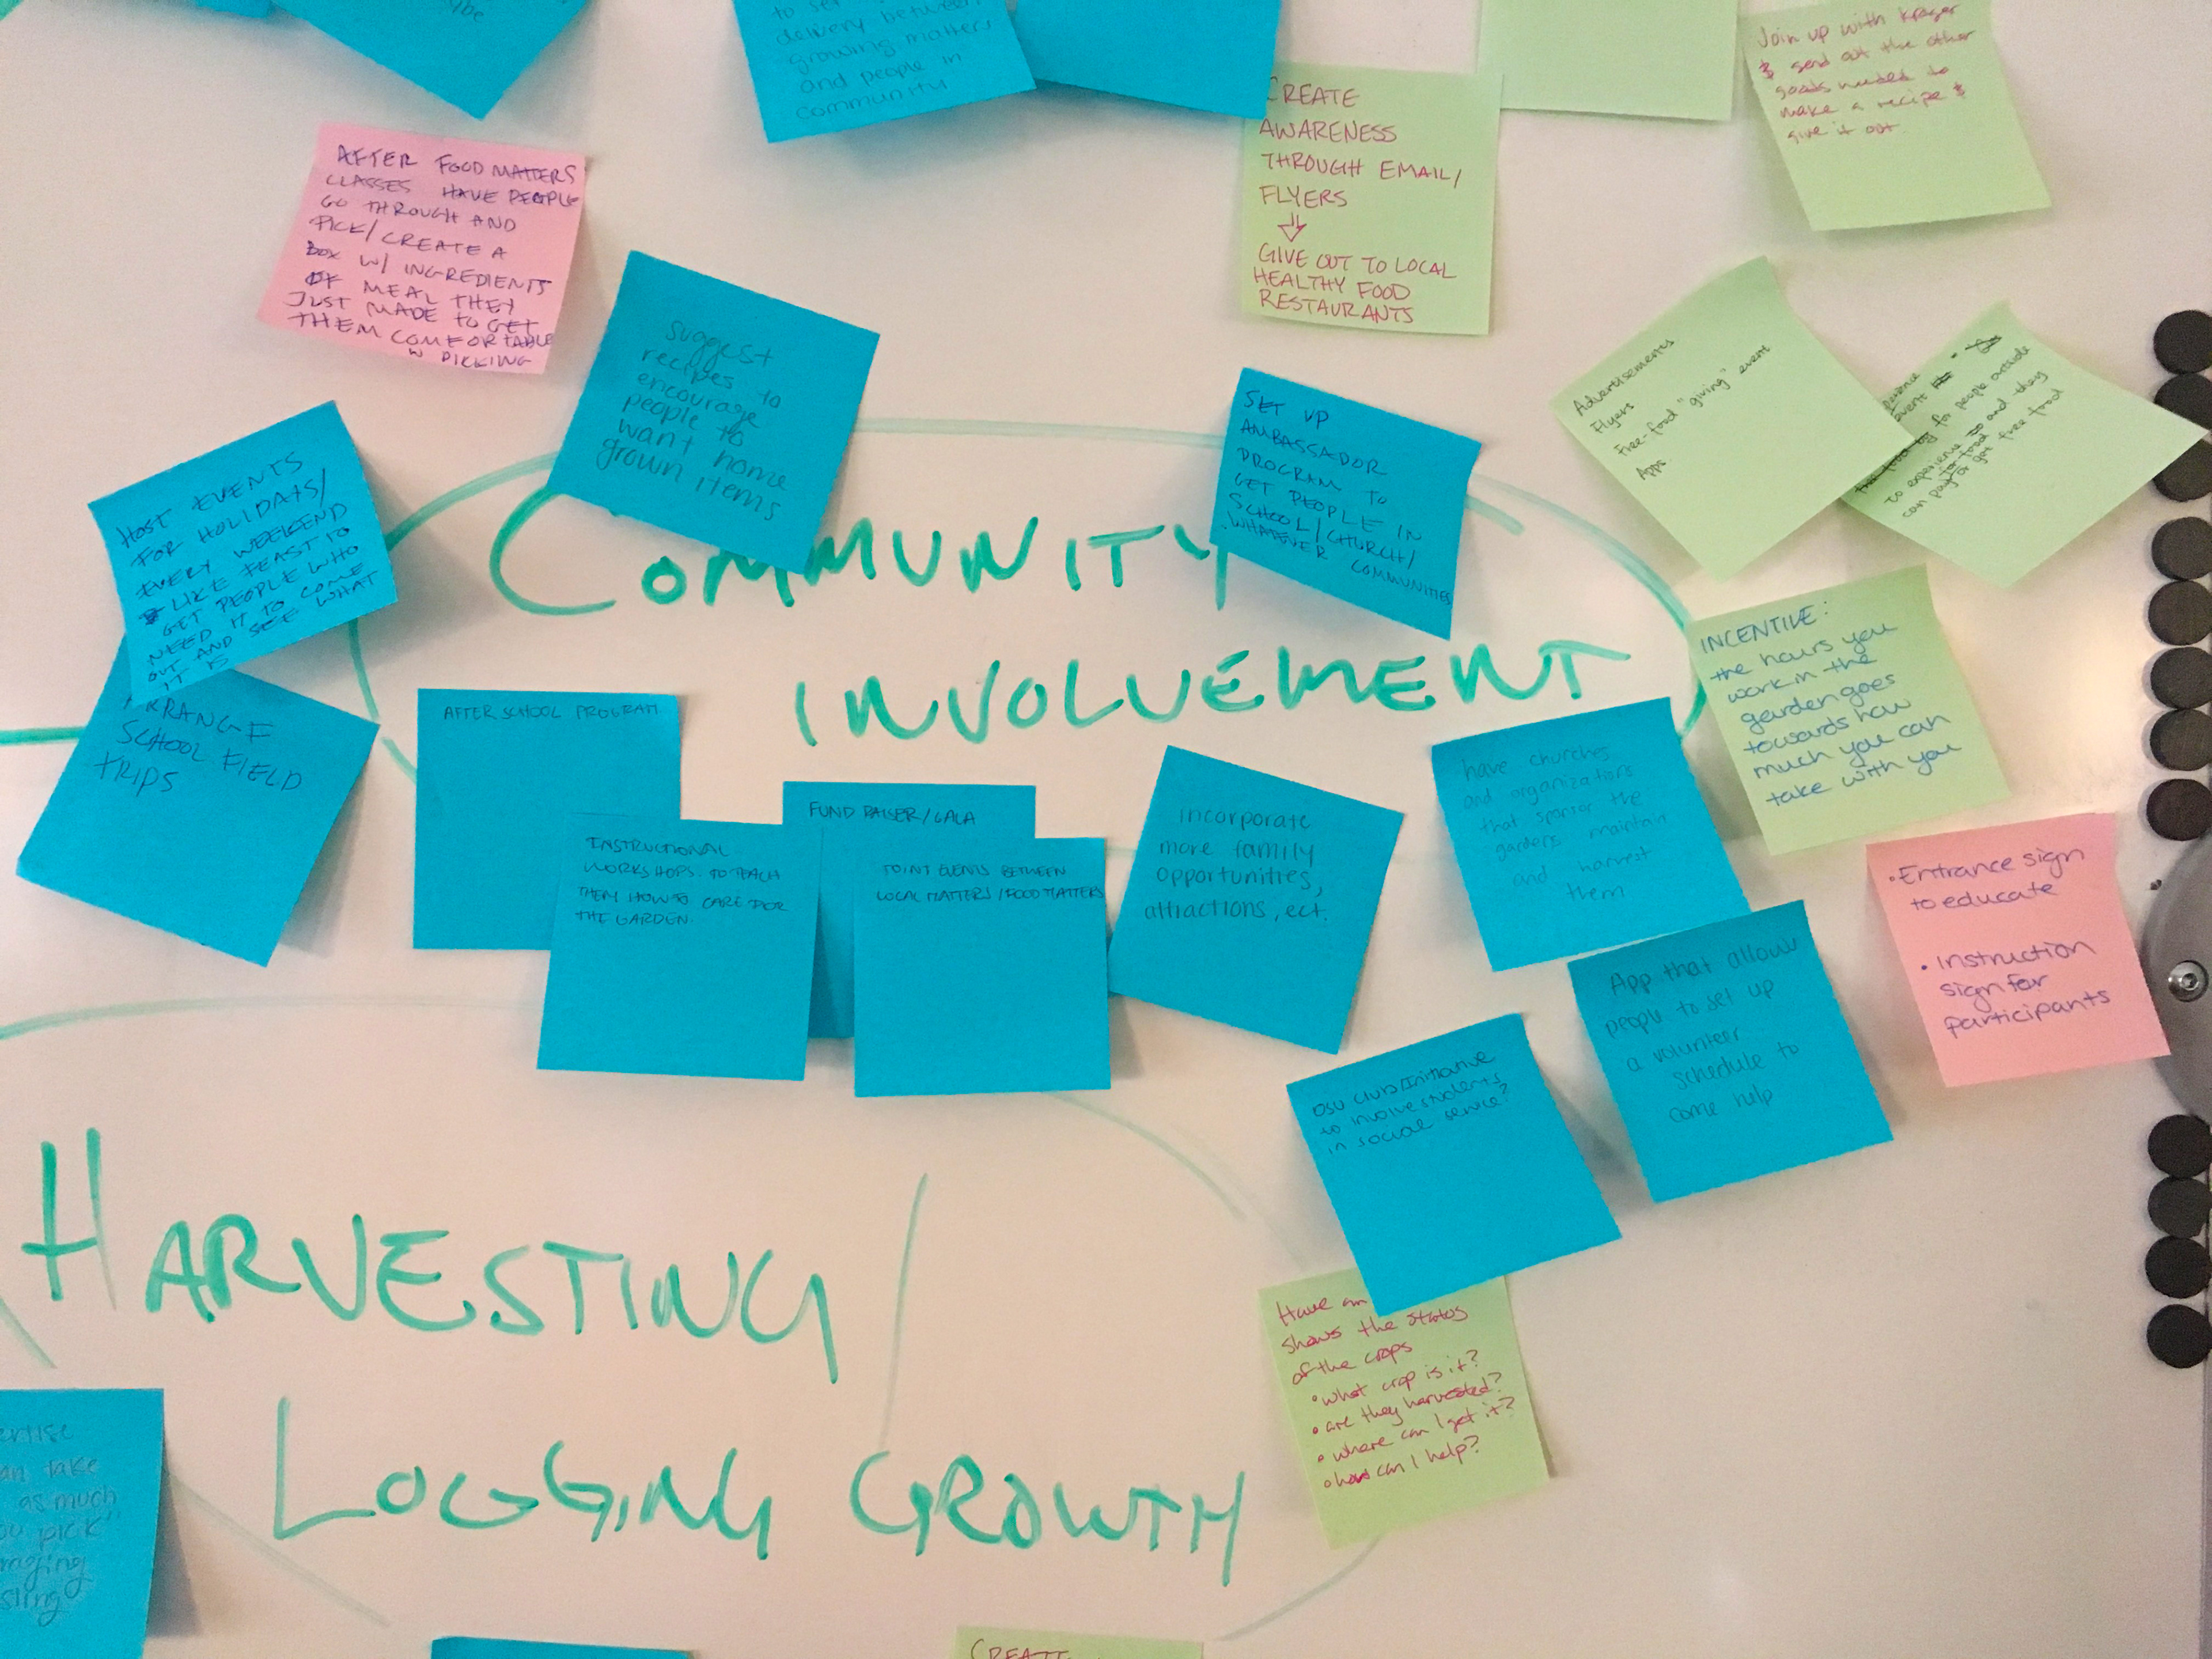 to set
delivery between
growing matters
and people in
community
Join up with kroger
& send out the other
goods needed to
make a recipe &
give it out.
CREATE
AWARENESS
THROUGH EMAIL/
FLYERS
GIVE OUT TO LOCAL
HEALTHY FOOD
RESTAURANTS
AFTER FOOD MATTERS
CLASSES HAVE PEOPLE
GO THROUGH AND
PICK/CREATE A
BOX W/ INGREDIENTS
OF MEAL THEY
JUST MADE TO GET
THEM COMFORTABLE
W PICKING
suggest
recipes to
encourage
people to
want home
grown items
SET UP
AMBASSADOR
PROGRAM TO
GET PEOPLE IN
SCHOOL/CHURCH/
WHATEVER COMMUNITIES
Advertisements
Flyers
Free-food "giving" event
Apps
event
for people outside
to experience and they
can pay for get free food
HOST EVENTS
FOR HOLIDAYS/
EVERY WEEKEND
LIKE FEAST TO
GET PEOPLE WHO
NEED IT TO COME
OUT AND SEE WHAT
IT IS
ARRANGE
SCHOOL FIELD
TRIPS
COMMUNITY
INVOLVEMENT
INCENTIVE:
the hours you
work in the
garden goes
towards how
much you can
take with you
AFTER SCHOOL PROGRAM
INSTRUCTIONAL
WORKSHOPS TO TEACH
THEM HOW TO CARE FOR
THE GARDEN.
FUND RAISER/GALA
JOINT EVENTS BETWEEN
LOCAL MATTERS/FOOD MATTERS
incorporate
more family
opportunities,
attractions, ect.
have churches
and organizations
that sponsor the
gardens maintain
and harvest
them
• Entrance sign
to educate
• Instruction
sign for
participants
App that allows
people to set up
a volunteer
schedule to
come help
OSU Clubs/Initiative
to involve students
in social service?
Have an
shows the status
of the crops
• what crop is it?
• are they harvested?
• where can I get it?
• how can I help?
HARVESTING/
LOGGING GROWTH
an take
as much
ou pick"
CREATE